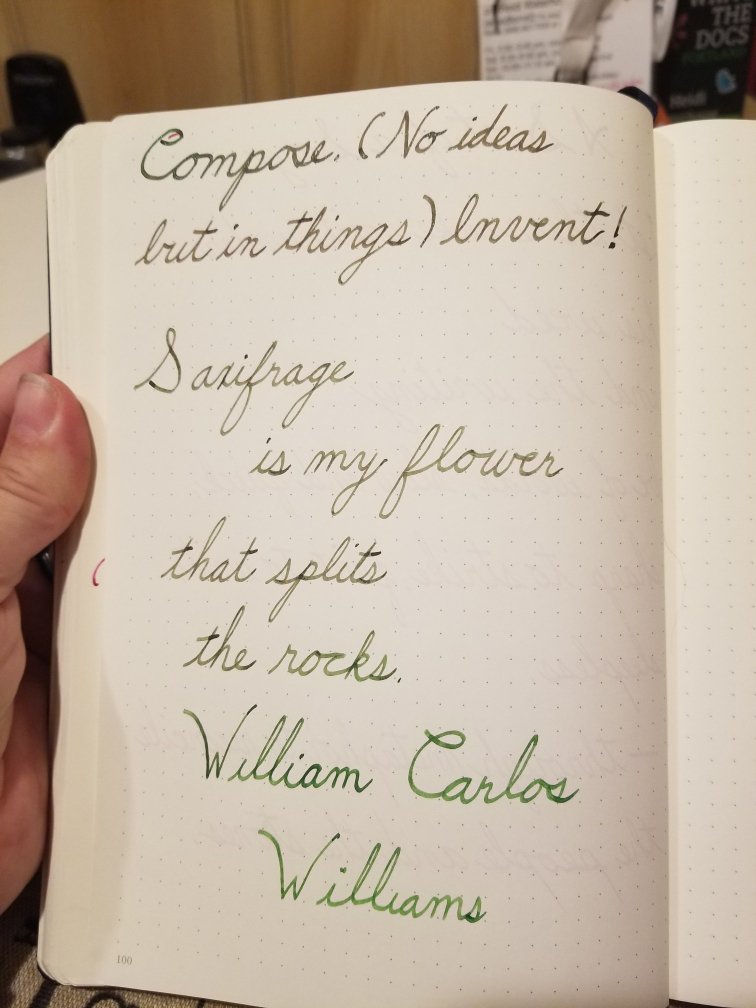 Compose. (No ideas
but in things) Invent!
Saxifrage
is my flower
that splits
the rocks.
William Carlos
Williams
100
THE
DOCS
Heidi